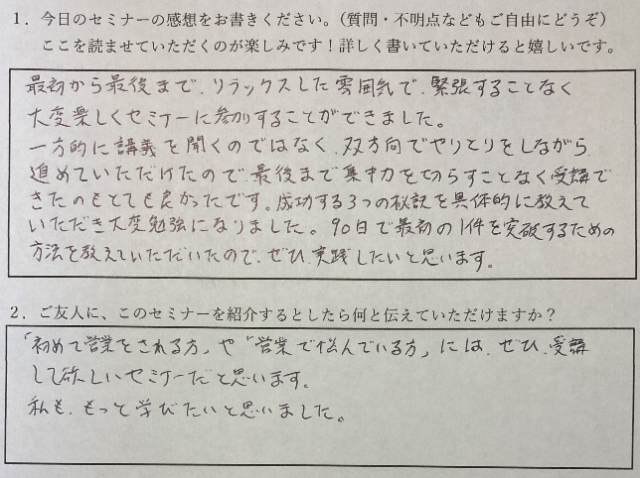 1．今日のセミナーの感想をお書きください。（質問・不明点などもご自由にどうぞ）
ここを読ませていただくのが楽しみです！詳しく書いていただけると嬉しいです。
最初から最後まで、リラックスした雰囲気で、緊張することなく
大変楽しくセミナーに参加することができました。
一方的に講義を聞くのではなく、双方向でやりとりをしながら
進めていただけたので、最後まで集中力を切らすことなく受講で
きたのもとても良かったです。成功する3つの秘訣を具体的に教えて
いただき大変勉強になりました。90日で最初の1件を突破するための
方法を教えていただいたので、ぜひ、実践したいと思います。
2．ご友人に、このセミナーを紹介するとしたら何と伝えていただけますか？
「初めて営業をされる方」や「営業で悩んでいる方」には、ぜひ、受講
して欲しいセミナーだと思います。
私も、もっと学びたいと思いました。